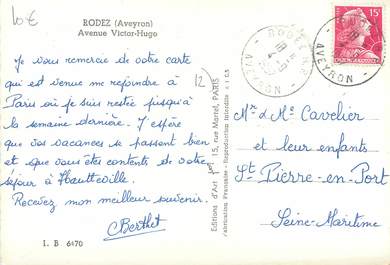 10 €
RODEZ (Aveyron)
Avenue Victor-Hugo
Je vous remercie de votre carte
qui est venue me rejoindre à
Paris où je suis restée jusqu'à
la semaine dernière. J'espère
que vos vacances se passent bien
et que vous êtes contents de votre
séjour à Hautteville.
Recevez mon meilleur souvenir.
CBerthet
I. B 6470
12
Editions d'Art 15, rue Martel, PARIS
Fabrication Française - Reproduction interdite
RODEZ R.P.
AVEYRON
15F
AVEYRON
Mr & Me Cavelier
et leurs enfants
St Pierre-en-Port
Seine-Maritime